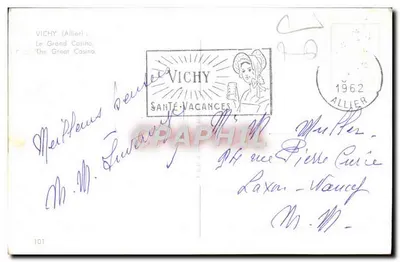 VICHY (Allier)
Le Grand Casino.
The Great Casino.
VICHY
SANTÉ-VACANCES
1962
ALLIER
Meilleurs
M. M.
M. M. Muller
24 rue Pierre Curie
Laxou-Nancy
M. M.
101